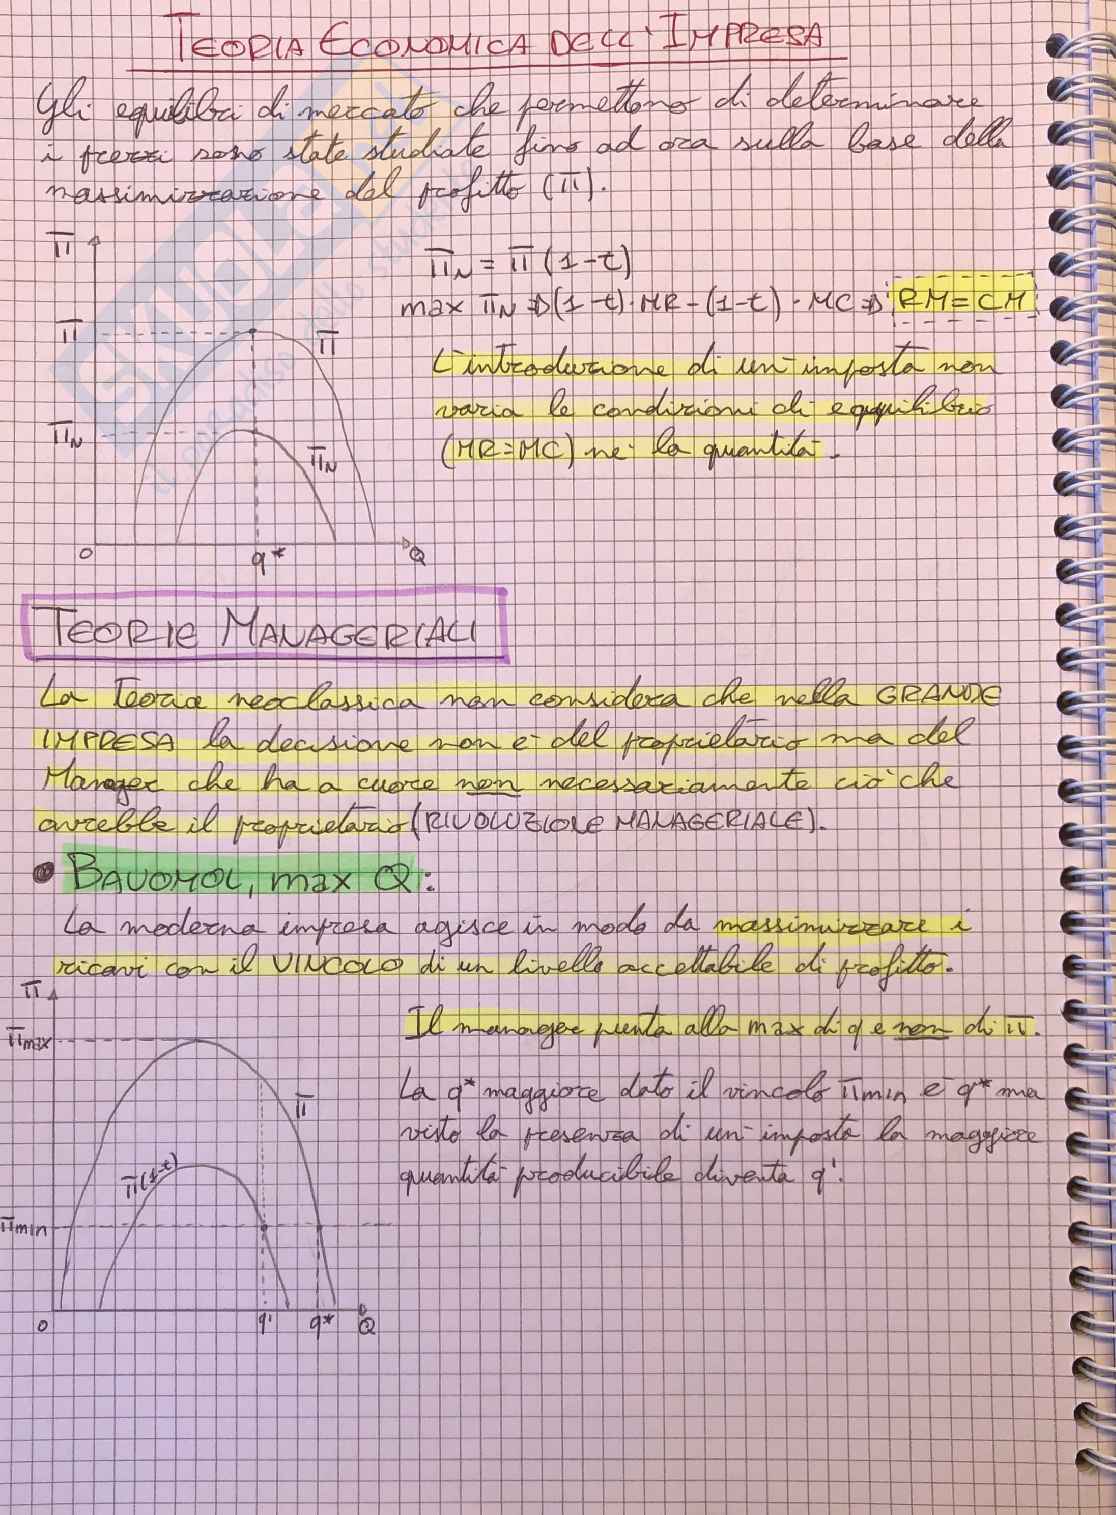 TEORIA ECONOMICA DELL'IMPRESA
Gli equilibri di mercato che permettono di determinare
i prezzi sono state studiate fino ad ora sulla base della
massimizzazione del profitto (π).
π
π_N = π (1-t)
max π_N ⇒ (1-t)·MR - (1-t)·MC ⇒ RM = CM
π
π
L'introduzione di un'imposta non
varia le condizioni di equilibrio
π_N
π_N
(MR=MC) né la quantità.
0
q*
Q
TEORIE MANAGERIALI
La teoria neoclassica non considera che nella GRANDE
IMPRESA la decisione non è del proprietario ma del
Manager che ha a cuore non necessariamente ciò che
avrebbe il proprietario (RIVOLUZIONE MANAGERIALE).
• BAUOMOL, max Q:
La moderna impresa agisce in modo da massimizzare i
ricavi con il VINCOLO di un livello accettabile di profitto.
π
πmax
Il manager punta alla max di q e non di π.
π
La q* maggiore dato il vincolo πmin è q* ma
visto la presenza di un'imposta la maggiore
quantità producibile diventa q'.
π(1-t)
πmin
0
q'
q*
Q
SKUOLA
il paradiso dello studente